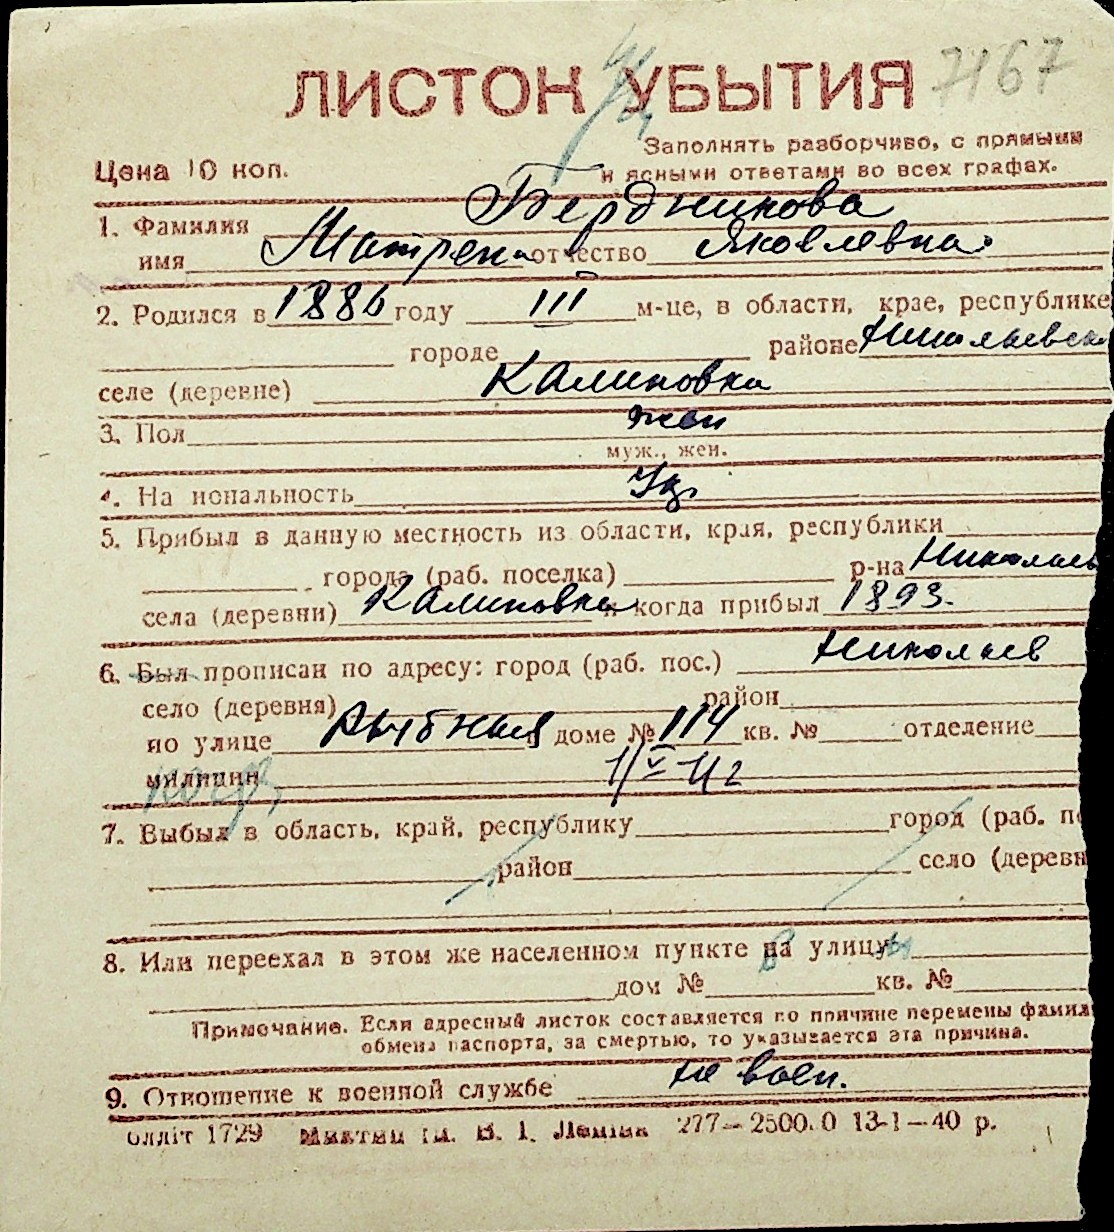 7167
ЛИСТОК УБЫТИЯ
Заполнять разборчиво, с прямыми
Цена 10 коп. и ясными ответами во всех графах.
1. Фамилия Бердникова
имя Матрена отчество Яковлевна
2. Родился в 1886 году III м-це, в области, крае, республике
городе районе Николаевск
селе (деревне) Калиновка
3. Пол жен
муж., жен.
4. На иональность
5. Прибыл в данную местность из области, края, республики
города (раб. поселка) р-на Николаев
села (деревни) Калиновка и когда прибыл 1893.
6. Был прописан по адресу: город (раб. пос.) Николаев
село (деревня) район
по улице Рыбная доме № 114 кв. № отделение
милиции 1/V-41 г
7. Выбыл в область, край, республику город (раб. по
район село (деревн
8. Или переехал в этом же населенном пункте на улицу
дом № кв. №
Примечание. Если адресный листок составляется по причине перемены фамил
обмена паспорта, за смертью, то указывается эта причина.
9. Отношение к военной службе не воен.
блліт 1729 ім. В. І. Леніна 277—2500.0 13-1—40 р.